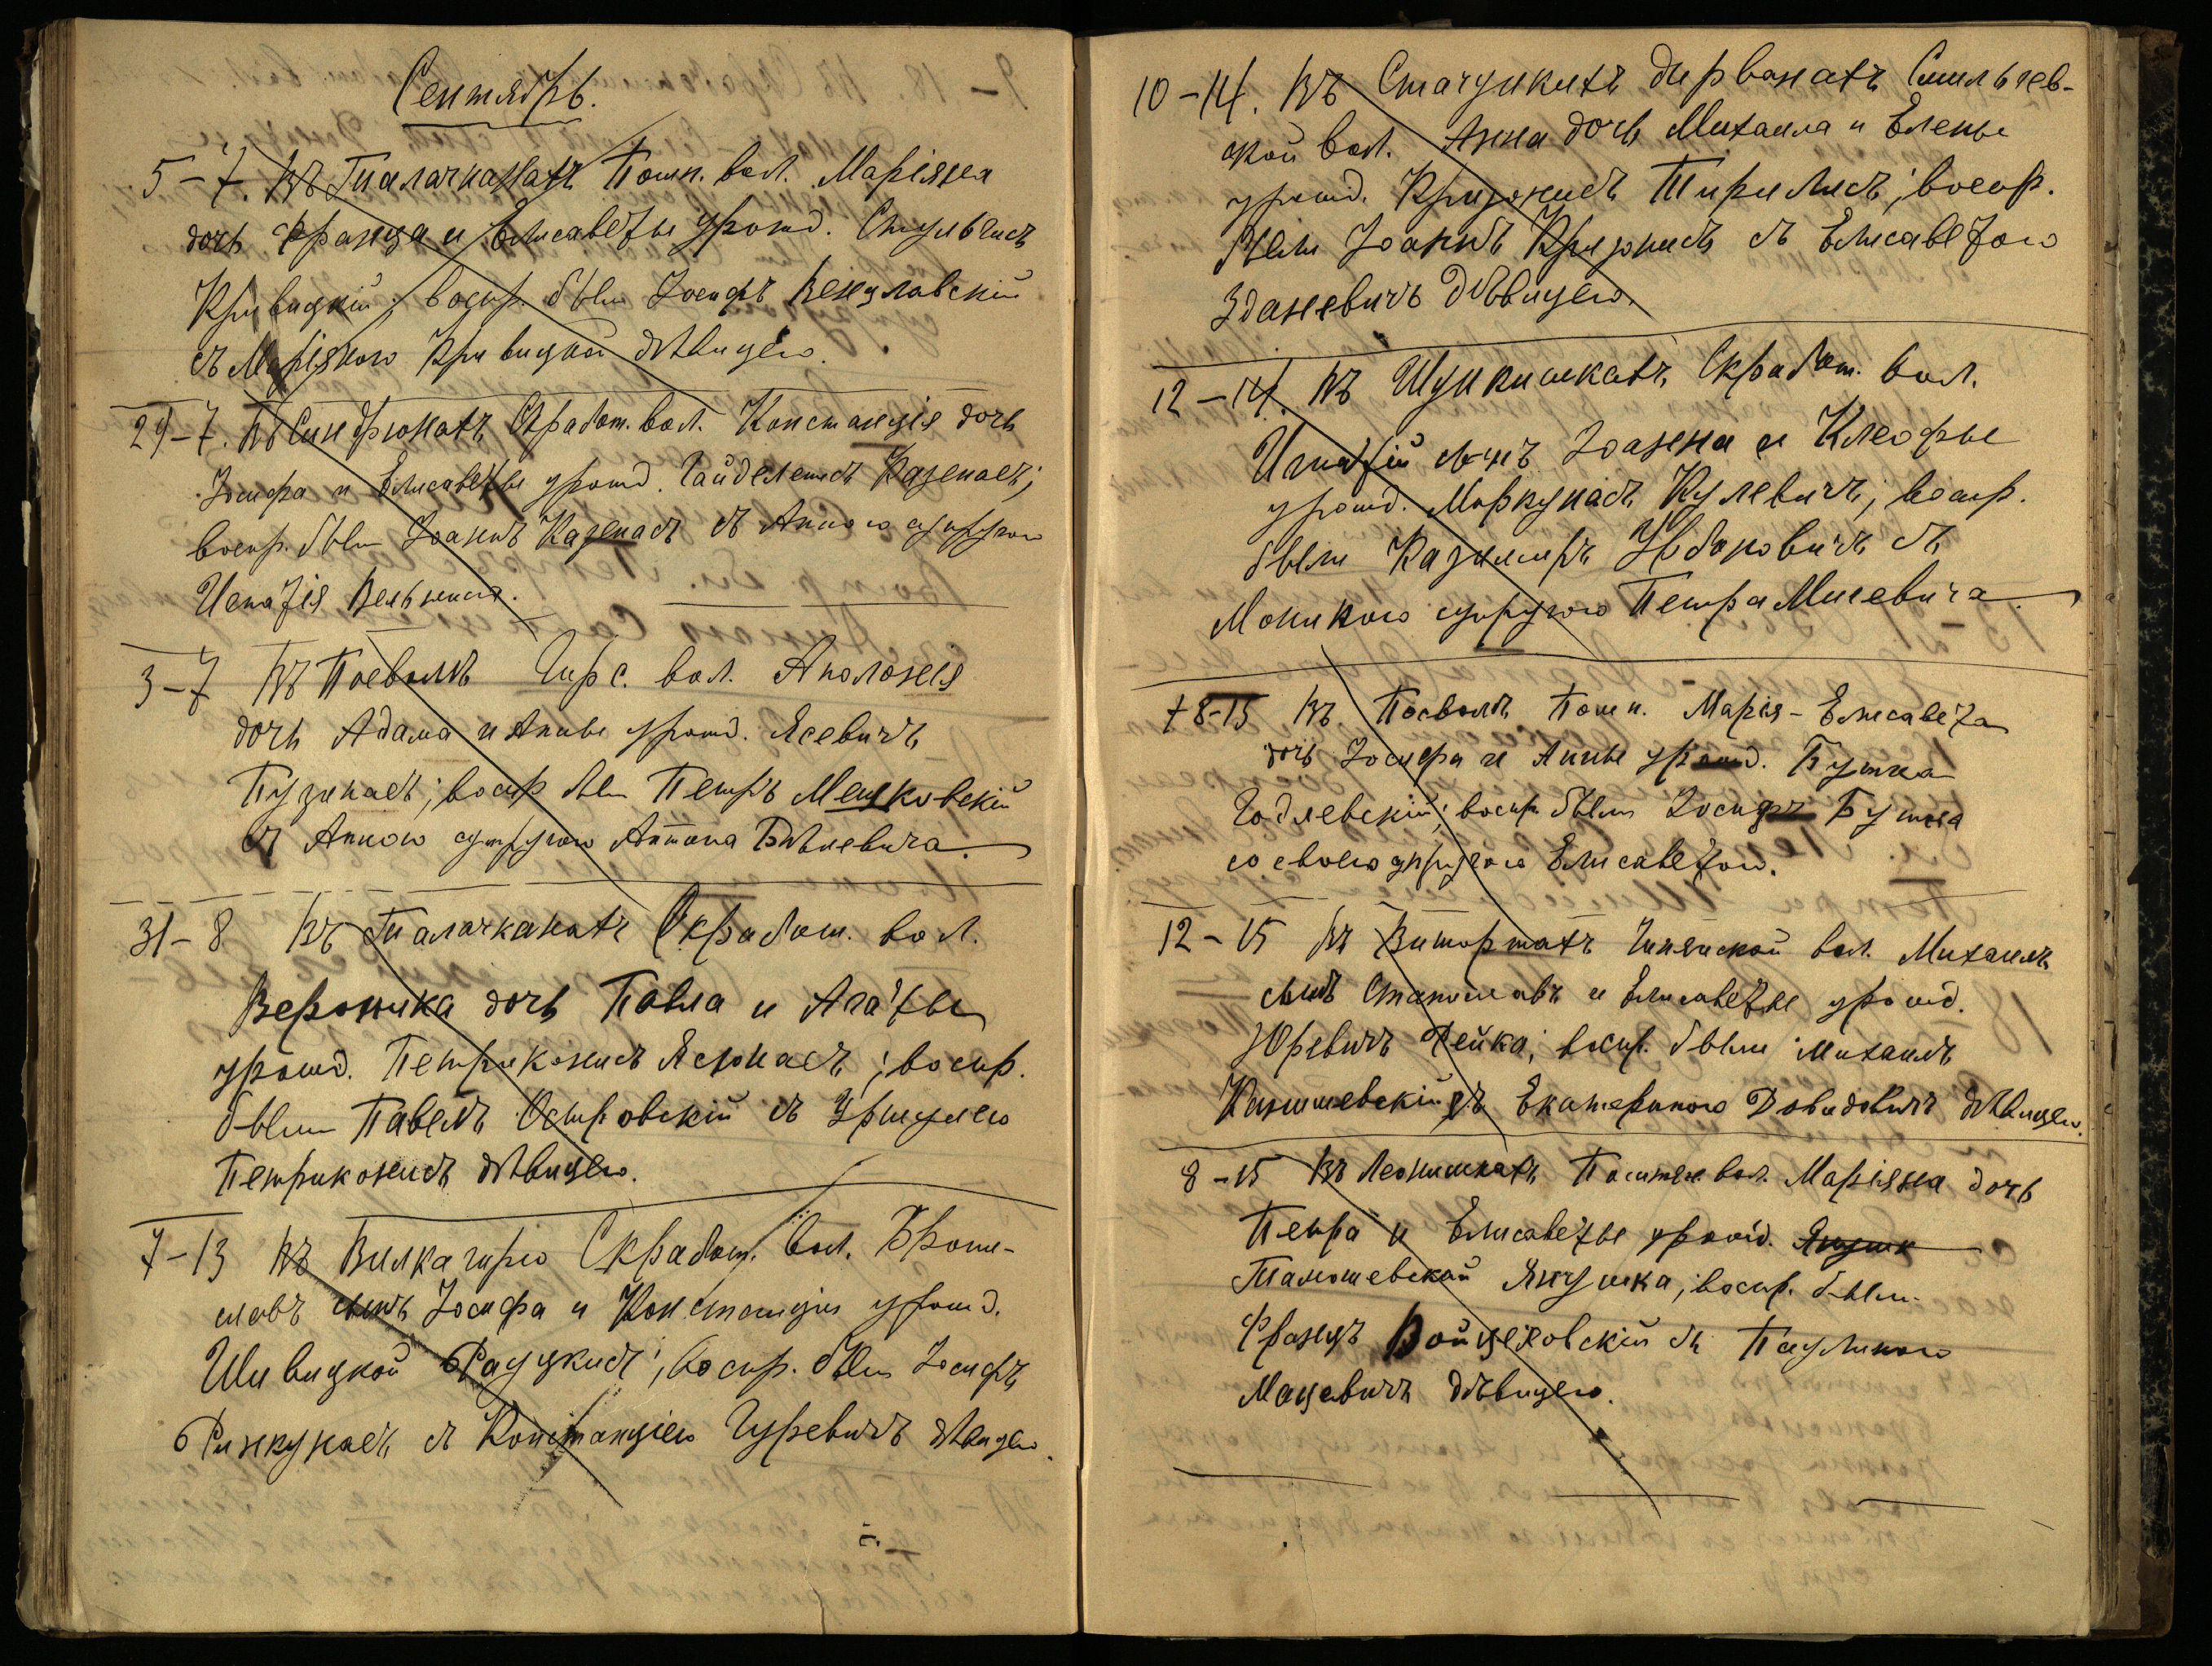 Сентябрь.
5-7. Въ Гналачканахъ Пошн. вол. Маріяна
дочь Франца и Елисаветы урожд. Стульгисъ
Кривицкій; воспр. были Іосифъ Венцлавскій
съ Маріяною Кривицкой дѣвицею.
29-7. Въ Синдрюнахъ Скработ. вол. Констанція дочь
Іосифа и Елисаветы урожд. Гайделешсъ Казенасъ;
воспр. были Іоаннъ Казенасъ съ Анною супругою
Игнатія Вельжиса.
3-7 Въ Посволѣ Гирс. вол. Аполонія
дочь Адама и Анны урожд. Ясевичъ
Пузинасъ; воспр были Петръ Мешковскій
съ Анною супругою Антона Вѣлевича.
31-8 Въ Гналачканахъ Скработ. вол.
Вероника дочь Павла и Агаты
урожд. Петриконисъ Ясюнасъ; воспр.
были Павелъ Островскій съ Уршулею
Петриконисъ дѣвицею.
7-13 Въ Вилкагирю Скработ. вол. Брони-
славъ сынъ Іосифа и Констанціи урожд.
Шивицкой Рауцкисъ; воспр. были Іосифъ
Ринкунасъ съ Констанціею Гуревичъ дѣвицею.
10-14. Въ Стачункихъ дирванахъ Смильгев-
ской вол. Анна дочь Михаила и Елены
урожд. Крижнисъ Тирилисъ; воспр.
были Іоаннъ Крижнисъ съ Елисаветою
Зданевичъ дѣвицею.
12-14. Въ Шунишкахъ Скработ. вол.
Игнатій сынъ Іоанна и Клеофы
урожд. Моркунасъ Кулевичъ; воспр.
были Казимиръ Урбоновичъ съ
Моникою супругою Петра Мисевича.
+8-15 Въ Посволѣ Пошн. Марія-Елисавета
дочь Іосифа и Анны урожд. Бутка
Годлевскій; воспр. были Іосифъ Бутка
со своею супругою Елисаветою.
12-15 Въ Витортахъ Гинянской вол. Михаилъ
сынъ Станиславъ и Елисаветы урожд.
Юревичъ Рейка; воспр. были Михаилъ
съ Екатериною Довидовичъ дѣвицею.
8-15 Въ Леонишкахъ Поситян. вол. Маріяна дочь
Петра и Елисаветы урожд. Янушк
Талюшевской Янушка; воспр. были
Францъ Войцеховскій съ Паулиною
Мацевичъ дѣвицею.